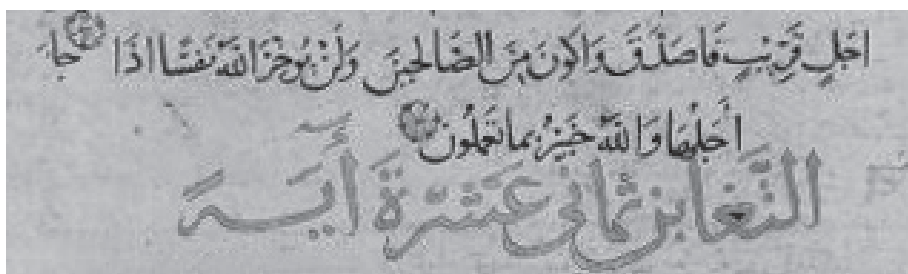 اجَلٍ قَرِيبٍ فَاصَدَّقَ وَاَكُونَ مِنَ الصَّالِحِينَ وَلَنْ يُؤَخِّرَ اللّهُ نَفْسًا اذَا جا
اَجَلُهَا وَاللّهُ خَبِيرٌ بِمَا تَعْمَلُونَ
التَّغَابُن ثَمَانِى عَشَرَةَ أَيَـة